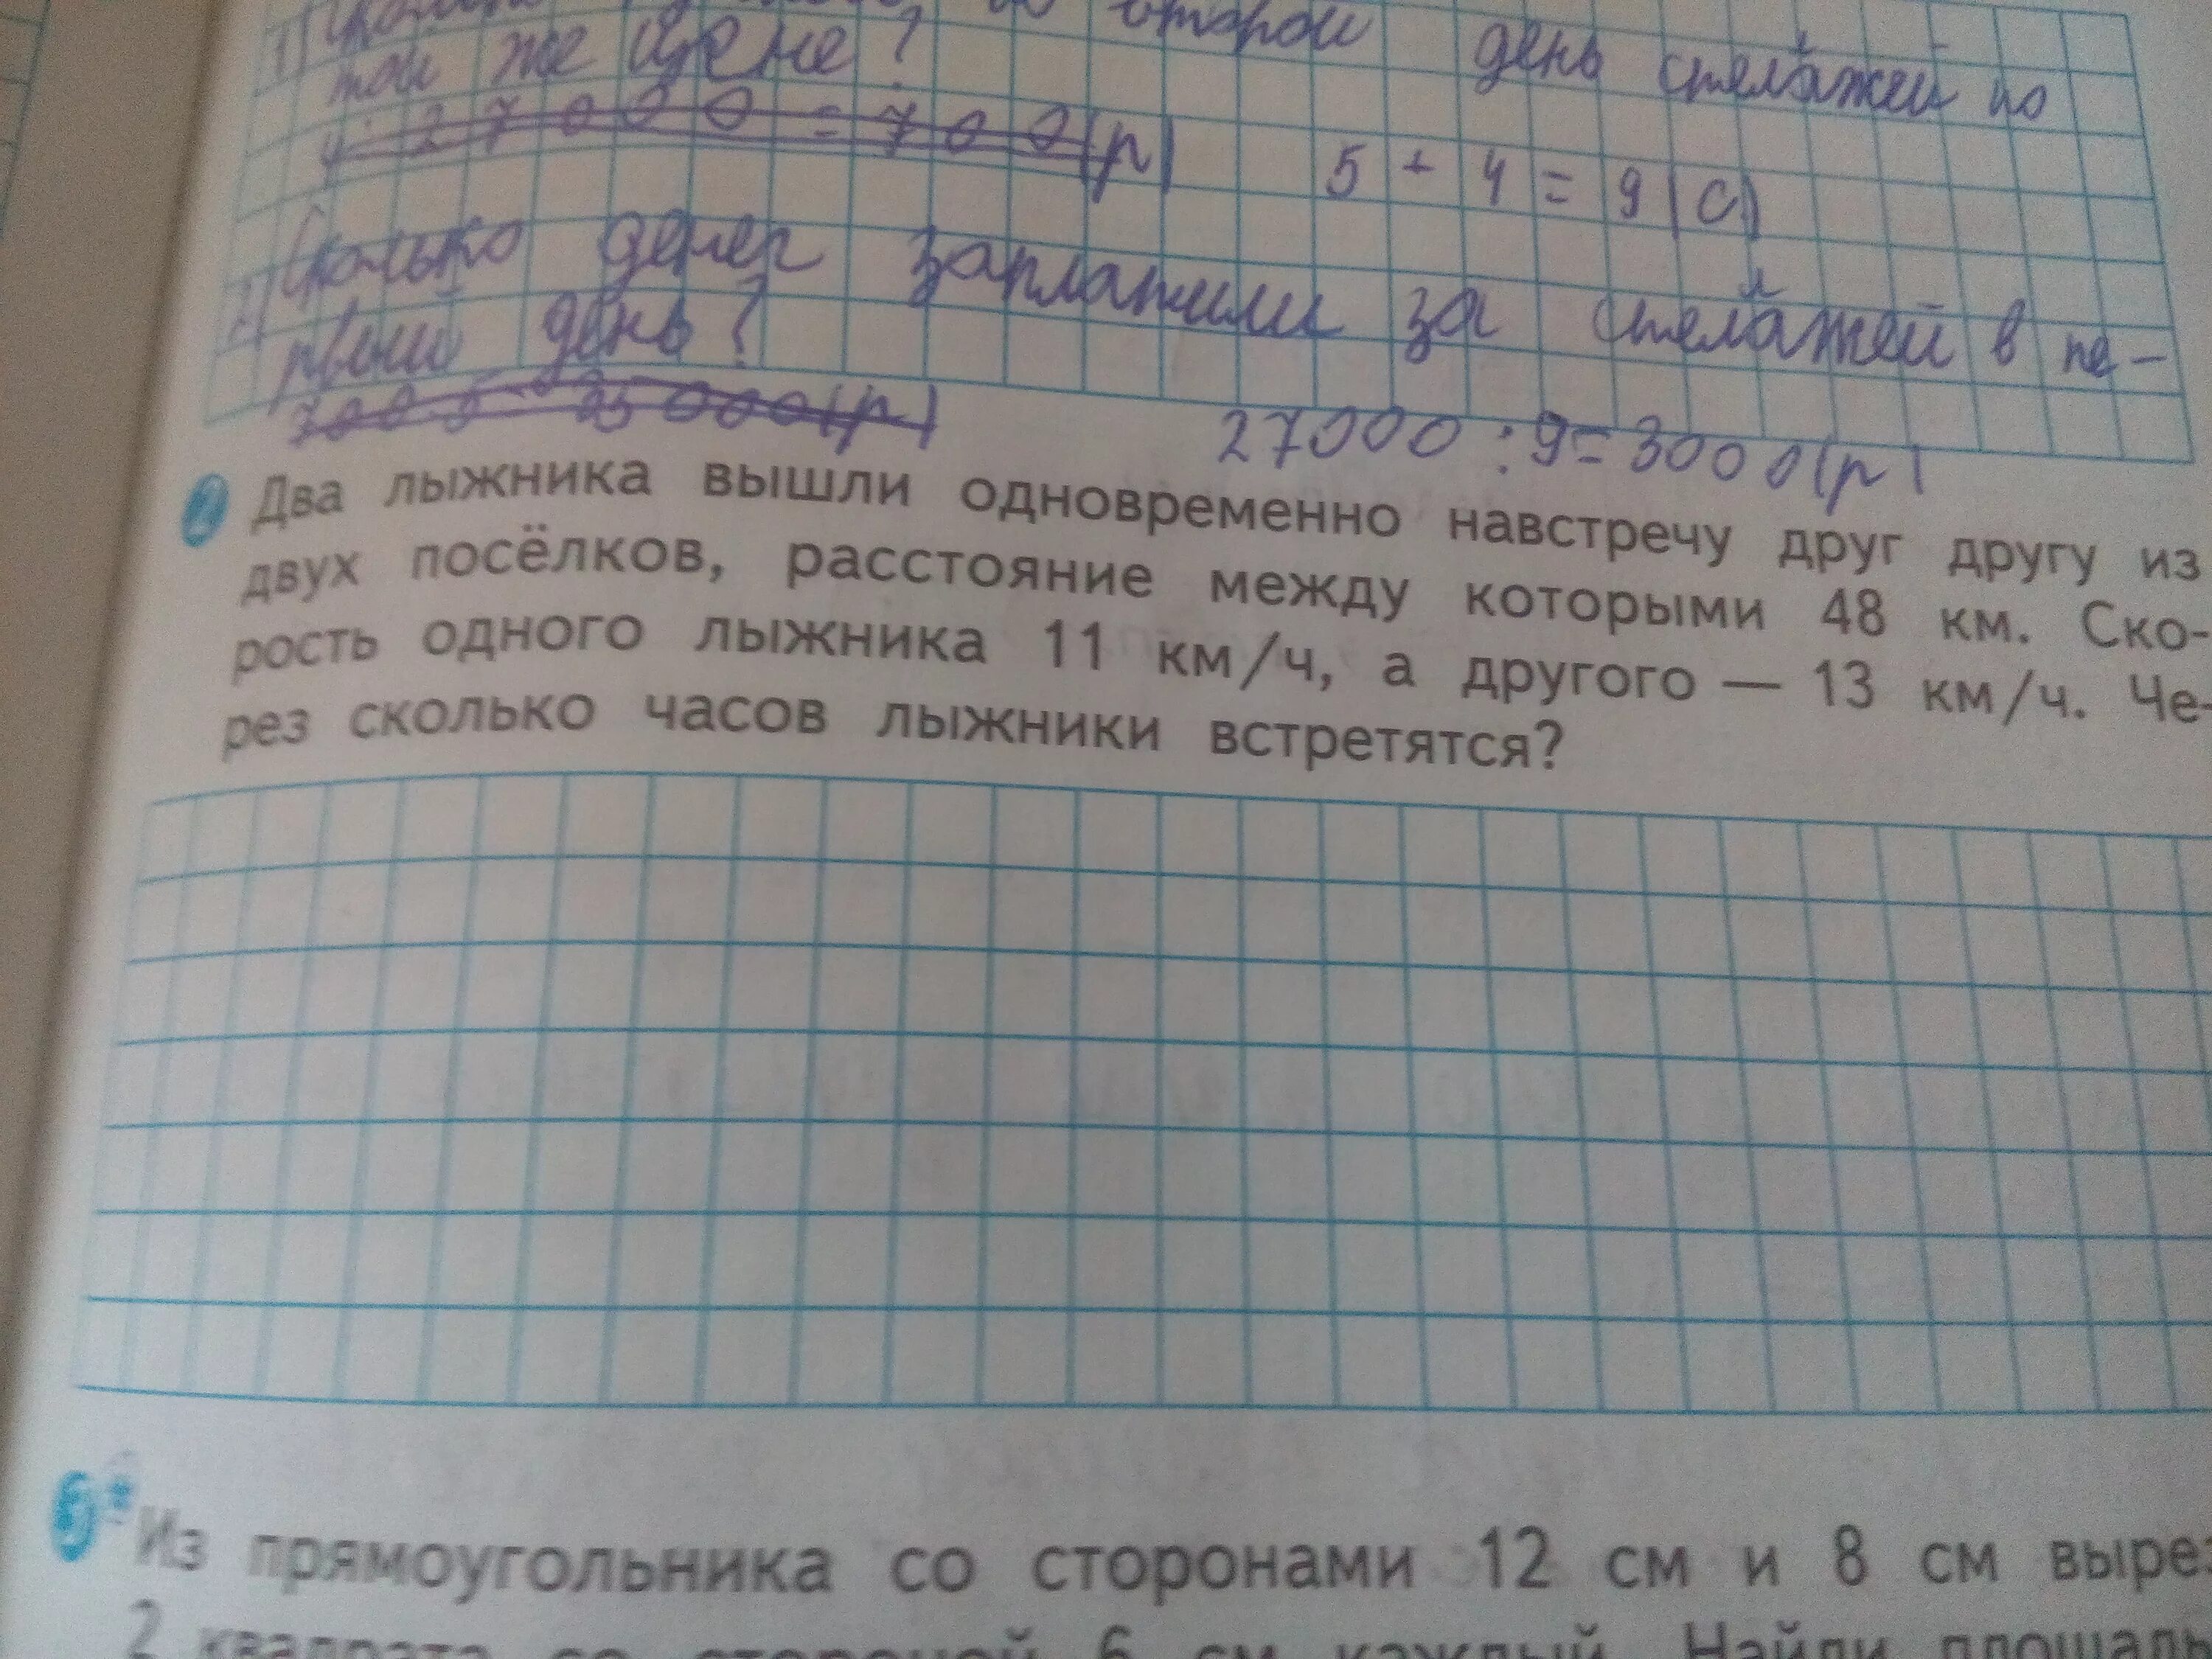 второй день стелажей по
той же цене?
4·27000=700(р)
5 + 4 = 9 (с)
Сколько денег заплатили за стелажей в пе-
рвый день?
27000:9=3000(р)
2 Два лыжника вышли одновременно навстречу друг другу из
двух посёлков, расстояние между которыми 48 км. Ско-
рость одного лыжника 11 км/ч, а другого — 13 км/ч. Че-
рез сколько часов лыжники встретятся?
Из прямоугольника со сторонами 12 см и 8 см вырез
2 квадрата со стороной 6 см каждый. Найди площадь